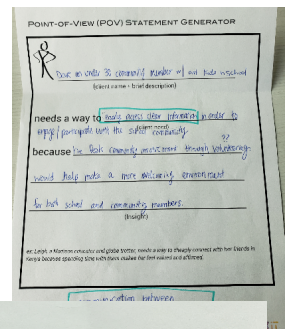 POINT-OF-VIEW (POV) STATEMENT GENERATOR
Dave an under 30 community member w/ out kids in school
(client name + brief description)
needs a way to easily access clear information in order to
engage/participate with the school community.
because he feels community involvement through volunteering
??
would help make a more welcoming environment
for both school and community members.
(Insight)
ex: Leigh, a Montana educator and globe trotter, needs a way to cheaply connect with her friends in
Kenya because spending time with them makes her feel valued and affirmed.
communication between